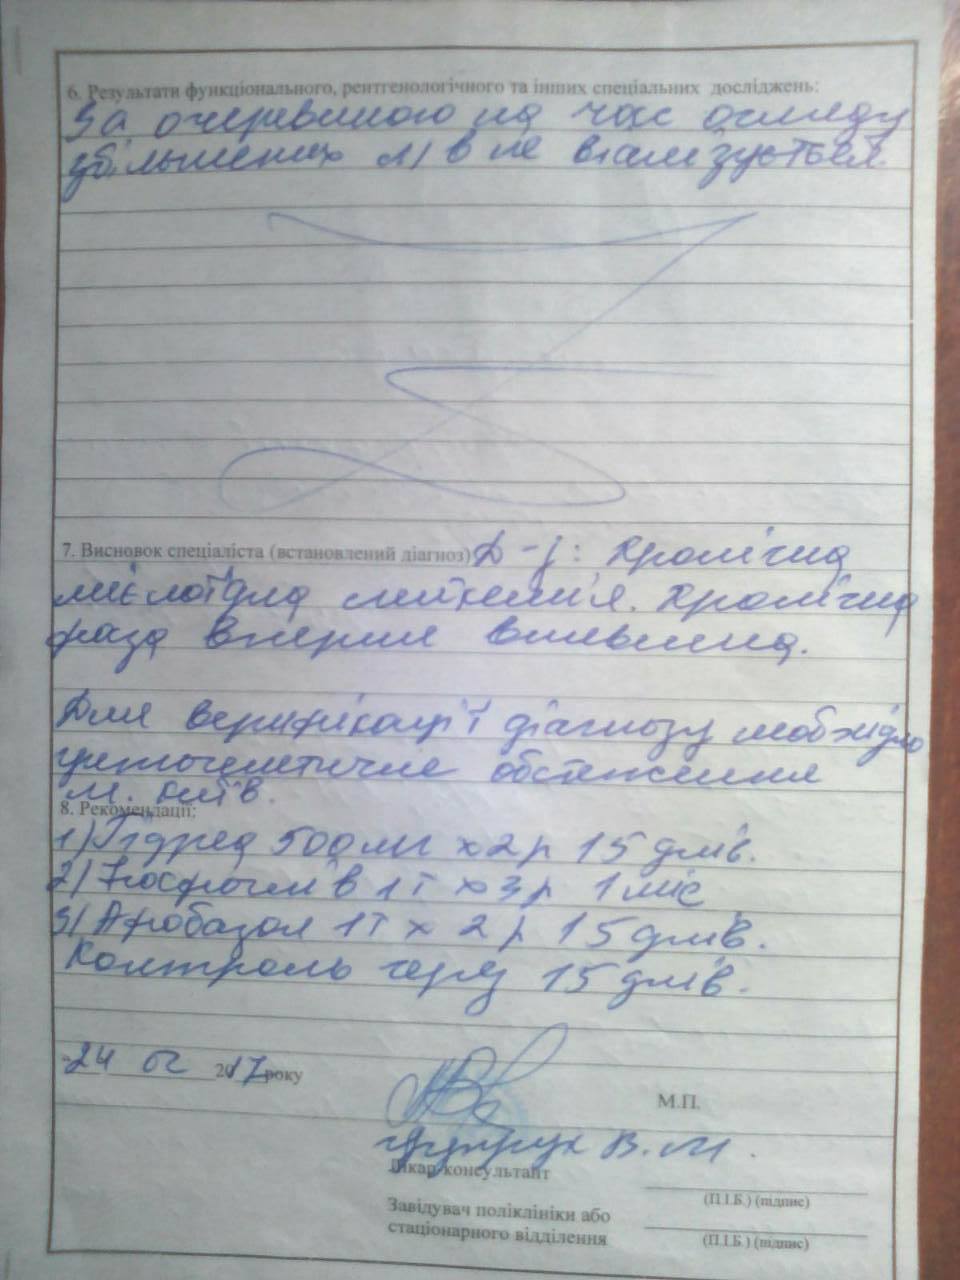 6. Результати функціонального, рентгенологічного та інших спеціальних досліджень:
За очеревиною на час огляду
збільшених л/в не візуалізується.
7. Висновок спеціаліста (встановлений діагноз) Д-з: Хронічна
мієлоїдна лейкемія. Хронічна
фаза вперше виявлена.
Для верифікації діагнозу необхідно
цитогенетичне обстеження
м. Київ.
8. Рекомендації:
1) Гідреа 500 мг х 2 р 15 днів.
2) 1т х 3р 1 міс
3) Афобазол 1т х 2 р 15 днів.
Контроль через 15 днів.
24 2017 року
М.П.
В. М.
Лікар-консультант
(П.І.Б.) (підпис)
Завідувач поліклініки або
стаціонарного відділення
(П.І.Б.) (підпис)